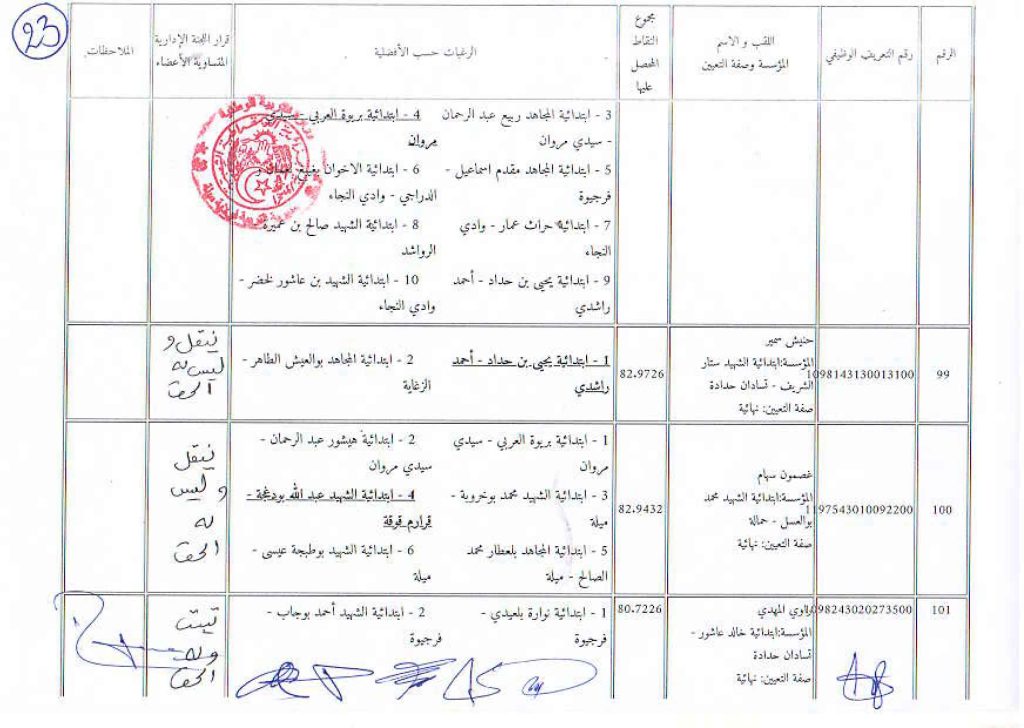 23
الرقم
رقم التعريف الوظيفي
اللقب و الاسم
المؤسسة وصفة التعيين
مجموع
النقاط
المحصل
عليها
الرغبات حسب الأفضلية
قرار اللجنة الإدارية
المتساوية الأعضاء
الملاحظات
3 - ابتدائية المجاهد ربيع عبد الرحمان
- سيدي مروان
4 - ابتدائية بريوة العربي - سيدي
مروان
5 - ابتدائية المجاهد مقدم اسماعيل -
فرجيوة
6 - ابتدائية الاخوان
الدراجي - وادي النجاء
7 - ابتدائية حراث عمار - وادي
النجاء
8 - ابتدائية الشهيد صالح بن عميرة
الرواشد
9 - ابتدائية يحيى بن حداد - أحمد
راشدي
10 - ابتدائية الشهيد بن عاشور لخضر -
وادي النجاء
99
1098143130013100
حنيش سمير
المؤسسة:ابتدائية الشهيد ستار
الشريف - تسادان حدادة
صفة التعيين: نهائية
82.9726
1 - ابتدائية يحيى بن حداد - أحمد
راشدي
2 - ابتدائية المجاهد بوالعيش الطاهر -
الزغاية
ينتقل و
ليس له
الحق
100
1197543010092200
غصمون سهام
المؤسسة:ابتدائية الشهيد محمد
بوالعسل - حمالة
صفة التعيين: نهائية
82.9432
1 - ابتدائية بريوة العربي - سيدي
مروان
2 - ابتدائية هيشور عبد الرحمان -
سيدي مروان
3 - ابتدائية الشهيد محمد بوخروبة -
ميلة
4 - ابتدائية الشهيد عبد الله بودبجة -
قرارم قوقة
5 - ابتدائية المجاهد بلعطار محمد
الصالح - ميلة
6 - ابتدائية الشهيد بوطبجة عيسى -
ميلة
ينتقل
و ليس
له
الحق
101
1098243020273500
راوي المهدي
المؤسسة:ابتدائية خالد عاشور -
تسادان حدادة
صفة التعيين: نهائية
80.7226
1 - ابتدائية نوارة بلعيدي -
فرجيوة
2 - ابتدائية الشهيد أحمد بوجاب -
فرجيوة
وله
الحق